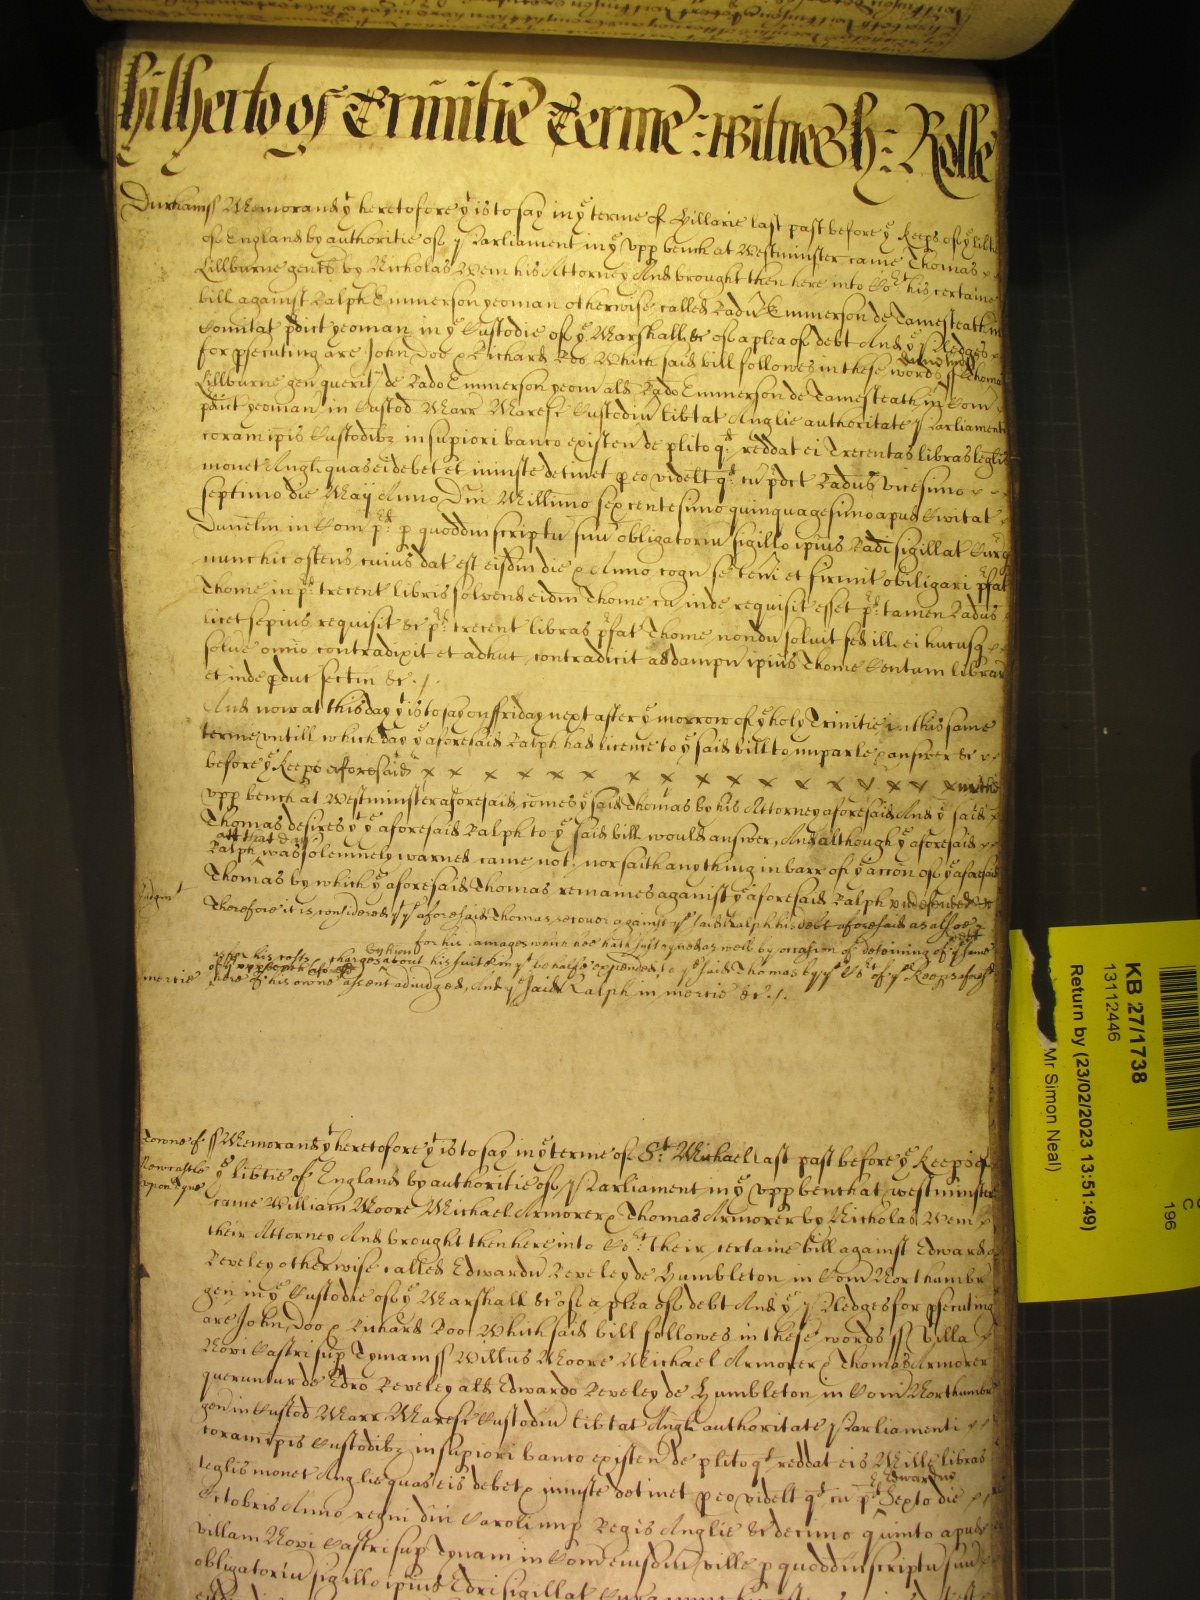 hitherto of Trinitie Terme : Witnes H : Rolle
Durham ss Memorand yt heretofore yt is to say in ye terme of Hillarie last past before ye Keeps of ye libtie
of England by authoritie of Parliament in ye upp bench at Westminster came Thomas
Lillburne gent by Nicholas Wem his Attorney And brought then here into Cort his certaine
bill against Ralph Emmerson yeoman otherwise called Radu Emmerson de Tamesteath in
Comitat pdict yeoman in ye Custodie of ye Marshall &c of a plea of debt And ye Pledges
for psecuting are John Doo & Richard Roo Which said bill followes in these words ss Thomas
Lillburne gen querit de Rado Emmerson yeom als Rado Emmerson de Tamesteath in Com
pdict yeoman in Custod Marr Maresc Custodiu libtat Anglie authoritate Parliamenti
coram ipis Custodibz in supiori banco existen de plito qd reddat ei Trecentas libras leglis
monet Angl quas ei debet et iniuste detinet p eo videlt qd cu pdct Radus vicesimo
septimo die Maij Anno Dni Millimo sexcentesimo quinquagesimo apud Civitat
Dunelm in Com pd p quoddm scriptu suu obligatoriu sigillo ipius Radi sigillat Curq
nunc hic ostens cuius dat est eisdm die & Anno cogn se teni et firmit obligari pfat
Thome in pd trecent libris solvend eidm Thome cu inde requisit esset pd tamen Radus
licet sepius requisit &c pd trecent libras pfat Thome nondu soluit sed ill ei hucusq
solue omio contradixit et adhuc contradicit ad dampu ipius Thome Centum librar
et inde pduc sectm &c
And now at this day yt is to say on ffriday next after ye morrow of ye holy Trinitie in this same
terme untill which day ye aforesaid Ralph had licence to ye said bill to imparle & answer &c
before ye Keeps aforesaid x x x x x x x x x x x x x x x x x in the
upp bench at Westminster aforesaid comes ye said Thomas by his Attorney aforesaid And ye said
Thomas desires yt ye aforesaid Ralph to ye said bill would answer, And although ye aforesaid
att that day
Ralph was solemnely warned came not, nor saith any thing in barr of ye accon of ye aforesaid
Thomas by which ye aforesaid Thomas remaines against ye aforesaid Ralph undefended
Judgmt Therefore it is considered yt ye aforesaid Thomas recover against ye said Ralph his debt aforesaid as also
for his damages which hee hath susteyned as well by occasion of deteining of ye same debt
as for his costs & charges by him about his suite in yt behalfe expended to ye said Thomas by ye Cort of ye Keeps aforesd
mercie here of his owne assent adiudged, And ye said Ralph in mercie &c
Towne of Newcastle upon Tyne
ss Memorand yt heretofore yt is to say in ye terme of St Michael last past before ye Keeps of
ye libtie of England by authoritie of Parliament in ye upp bench at westminster
came William Moore Michael Armorer & Thomas Armorer by Nicholas Wem
their Attorney And brought then here into Cort their certaine bill against Edward
Reveley otherwise called Edwardu Reveley de Humbleton in Com Northumbr
gen in ye Custodie of ye Marshall &c of a plea of debt And ye Pledges for psecuting
are John Doo & Richard Roo Which said bill followes in these words ss Villa
Novi Castri sup Tynam ss Willus Moore Michael Armorer & Thomas Armorer
queruntur de Edro Reveley als Edwardo Reveley de Humbleton in Com Northumbr
gen in Custod Marr Maresc Custodiu libtat Angl authoritate Parliamenti
coram ipis Custodibz in supiori banco existen de plito qd reddat eis Mille libras
leglis monet Anglie quas eis debet & iniuste detinet p eo videlt qd cu pd Edwardus Sexto die
Octobris Anno regni dni Caroli nup Regis Anglie &c decimo quinto apud
villam Novi Castri sup Tynam in Com eiusdm ville p quoddm scriptu suu
obligatoriu sigillo ipius Edri sigillat
KB 27/1738
13112446
Return by (23/02/2023 13:51:49)
Mr Simon Neal)
C
196